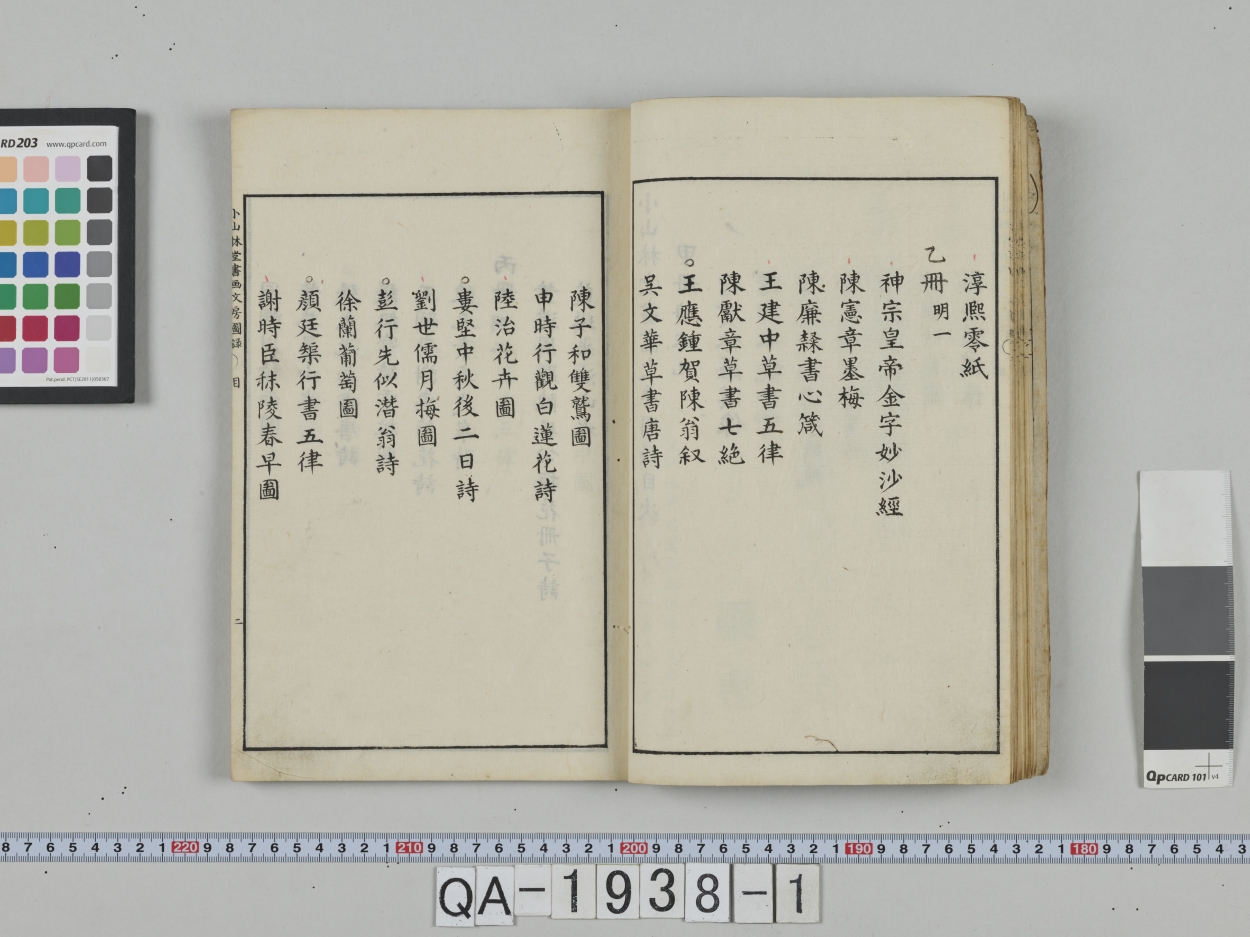 淳熙零紙
乙冊 明一
神宗皇帝金字妙沙經
陳憲章墨梅
陳廉隸書心箴
王建中草書五律
陳獻章草書七絶
○王應鍾賀陳翁叙
吳文華草書唐詩
陳子和雙鷺圖
申時行觀白蓮花詩
陸治花卉圖
○婁堅中秋後二日詩
劉世儒月梅圖
○彭行先似潛翁詩
徐蘭葡萄圖
○顏廷榘行書五律
謝時臣秣陵春早圖
小山林堂書画文房圖録
目
二
RD203 www.qpcard.com
QpCARD 101 v4
8 7 6 5 4 3 2 1 220 9 8 7 6 5 4 3 2 1 210 9 8 7 6 5 4 3 2 1 200 9 8 7 6 5 4 3 2 1 190 9 8 7 6 5 4 3 2 1 180 9 8 7 6 5 4 3
QA-1938-1